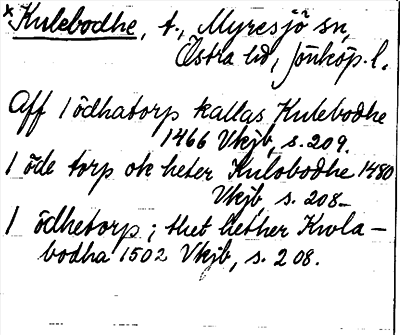 ×Kulebodhe, t., Myresjö sn,
Östra hd, Jönköp. l.
Aff 1 ödhatorp kallas Kulebodhe
1466 Vkjb, s. 209.
1 öde torp ok heter Kulobodhe 1480
Vkjb, s. 208–
1 ödhetorp; thet hether Kwla-
bodha 1502 Vkjb, s. 208.